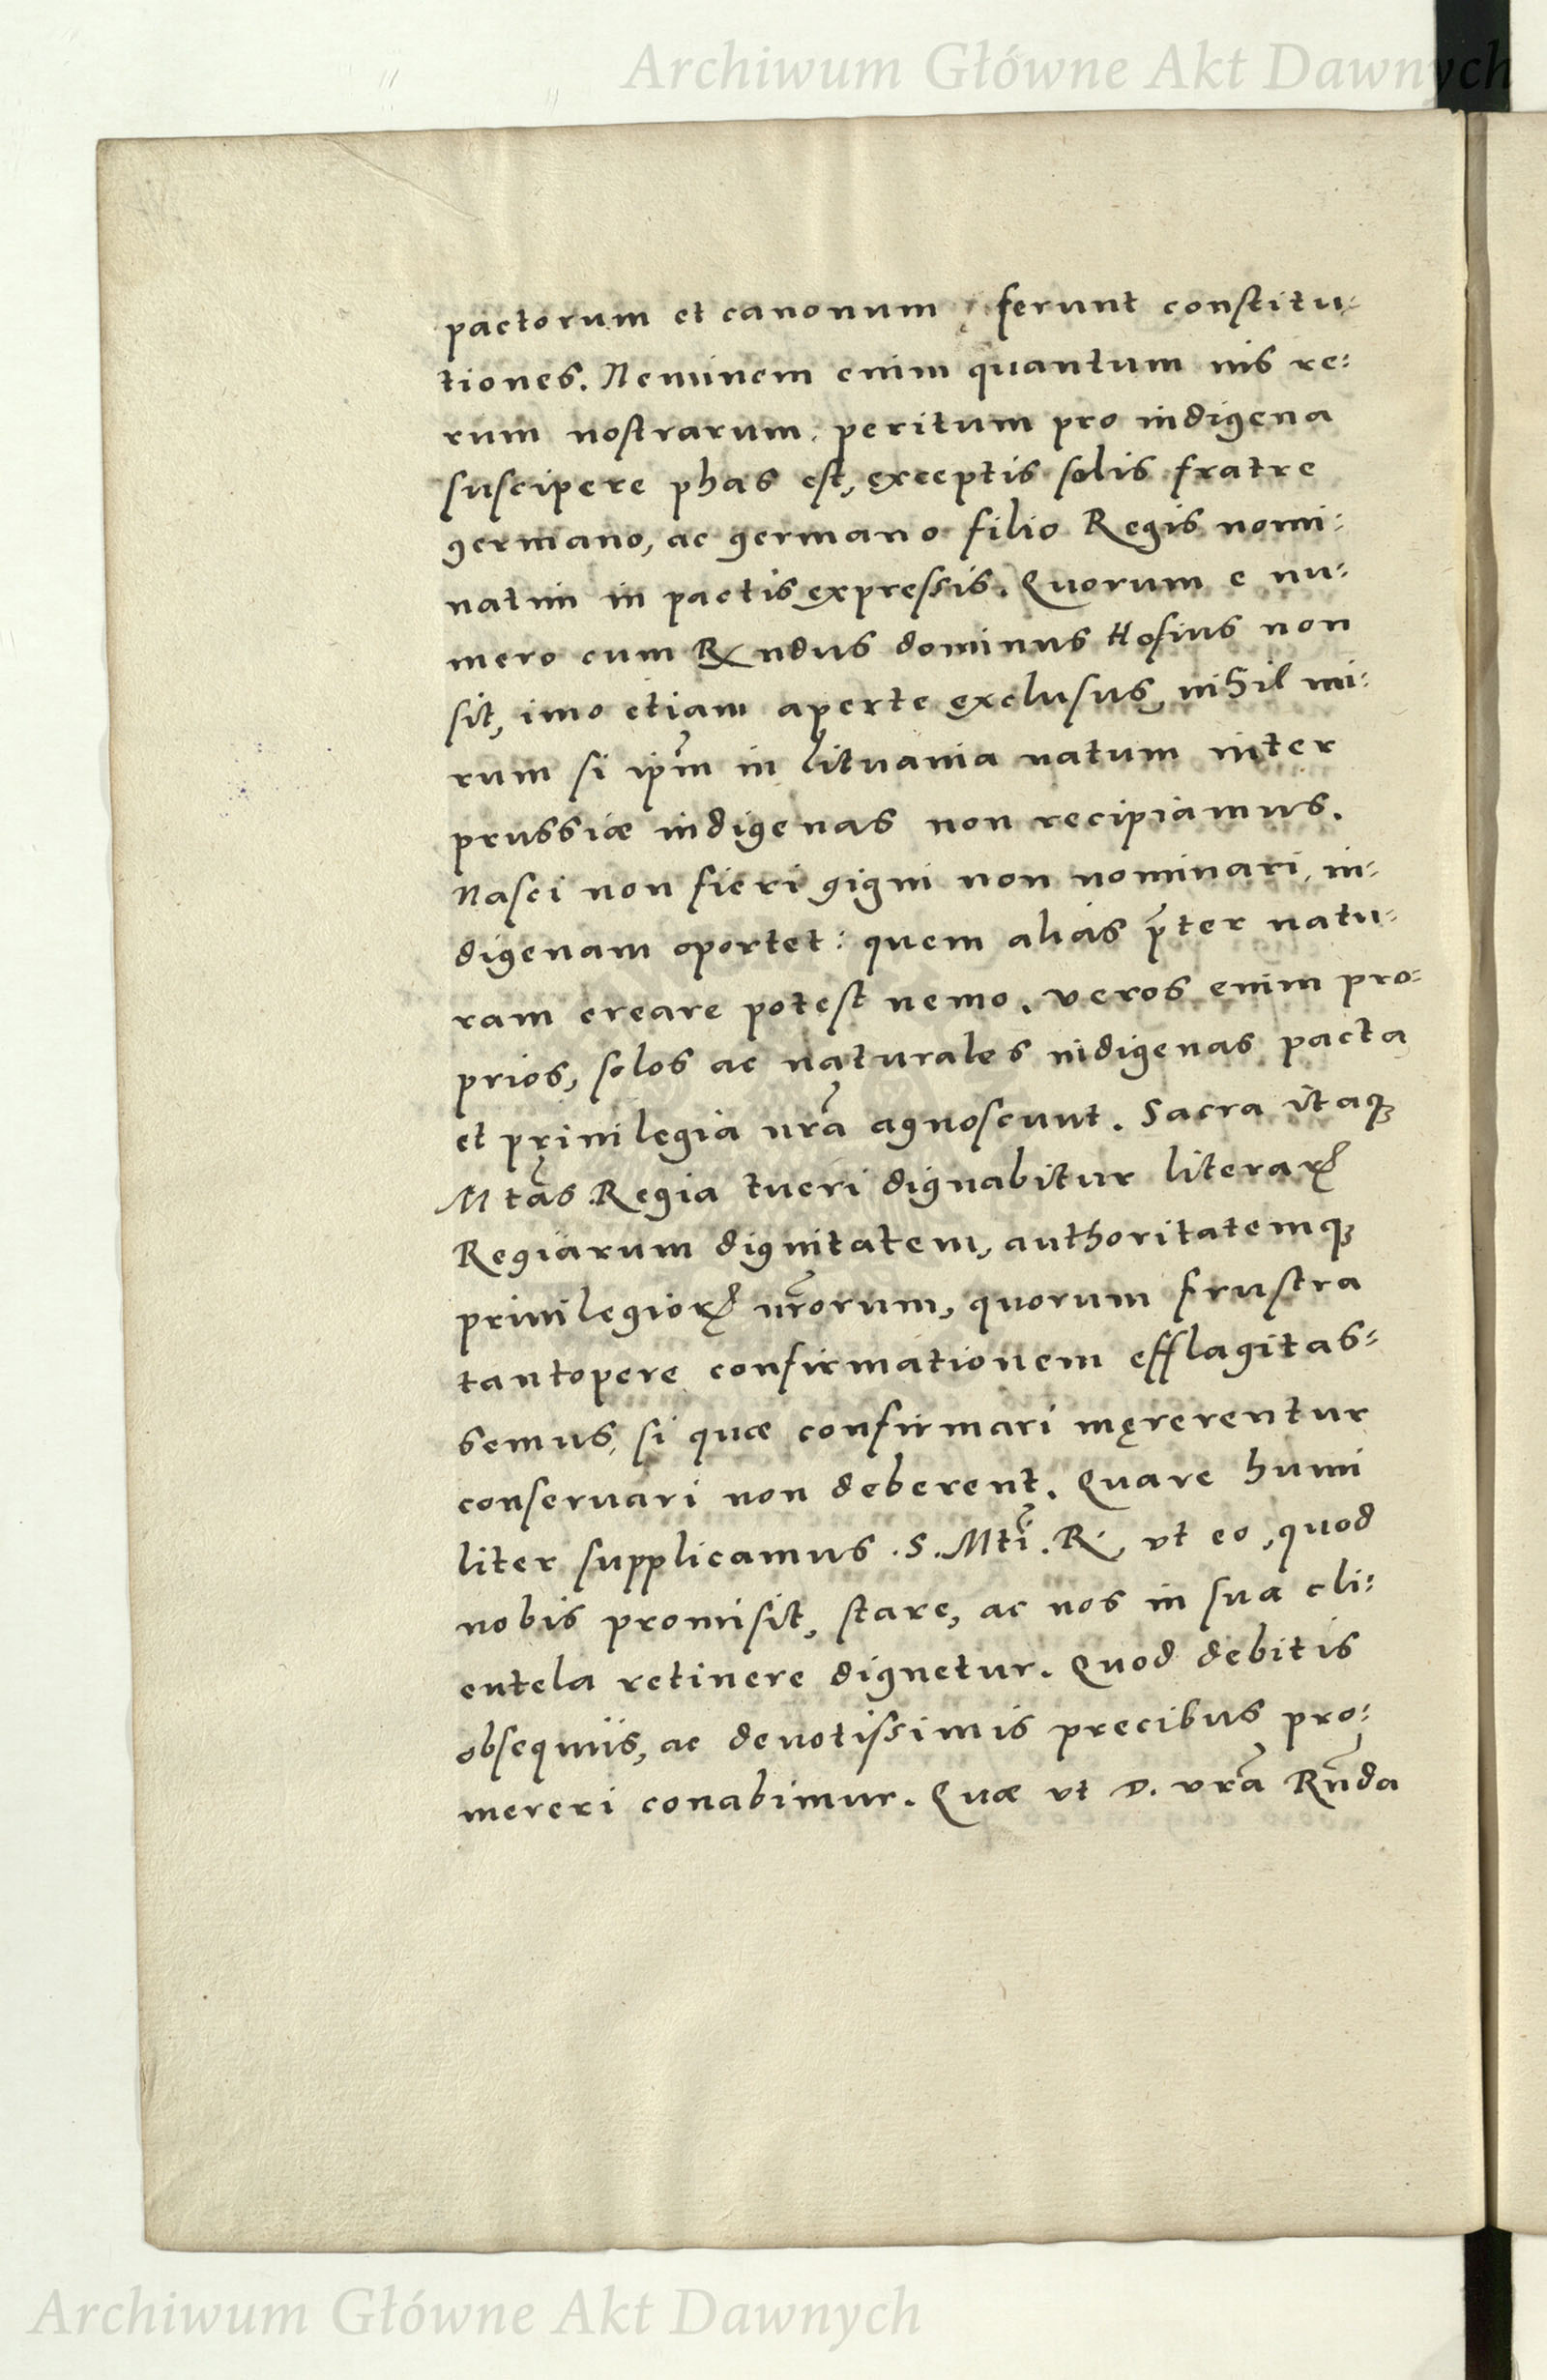 Archiwum Główne Akt Dawnych
pactorum et canonum ferunt constitu-
tiones. Neminem enim quantum uis re:
rum nostrarum peritum pro indigena
suscipere phas est, exceptis solis fratre
germano, ac germano filio Regis nomi:
natim in pactis expressis. Quorum e nu:
mero cum Rndus dominus Hosius non
sit, imo etiam aperte exclusus, nihil mi:
rum si ip̃m in lituania natum inter
prussiæ indigenas non recipiamus.
Nasci non fieri gigni non nominari, in:
digenam oportet: quem alias p̃ter natu:
ram creare potest nemo. veros enim pro:
prios, solos ac naturales indigenas pacta
et priuilegia nr̃a agnoscunt. Sacra itaqꝫ
Mtãs Regia tueri dignabitur literaꝝ
Regiarum dignitatem, authoritatemqꝫ
priuilegioꝝ nr̃orum, quorum frustra
tantopere confirmationem efflagitas:
semus, si quæ confirmari męrerentur
conseruari non deberent. Quare humi
liter supplicamus .S. Mtĩ. R. vt eo, quod
nobis promisit, stare, ac nos in sua cli:
entela retinere dignetur. Quod debitis
obsequiis, ac deuotissimis precibus pro:
mereri conabimur. Quæ vt D. vr̃a Rñda
Archiwum Główne Akt Dawnych